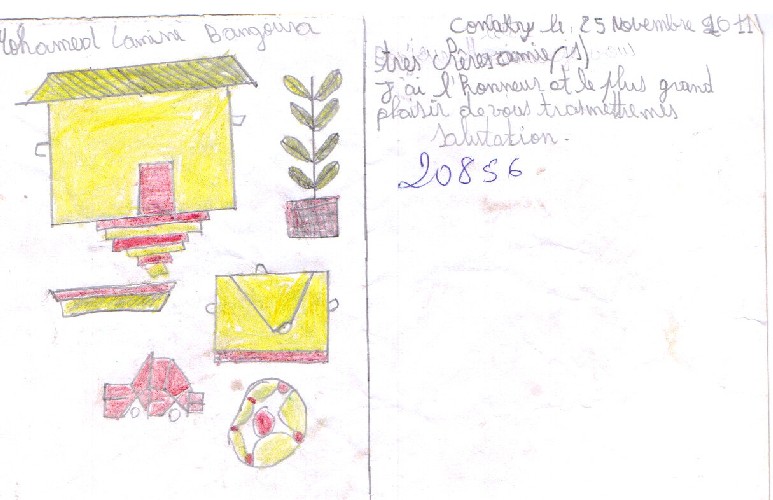 Mohamed Lamine Bangoura
Conakry le, 25 Novembre
très chères amie(s)
J'ai l'honneur et le plus grand
plaisir de vous trasmettre mis
Salutation.
20856